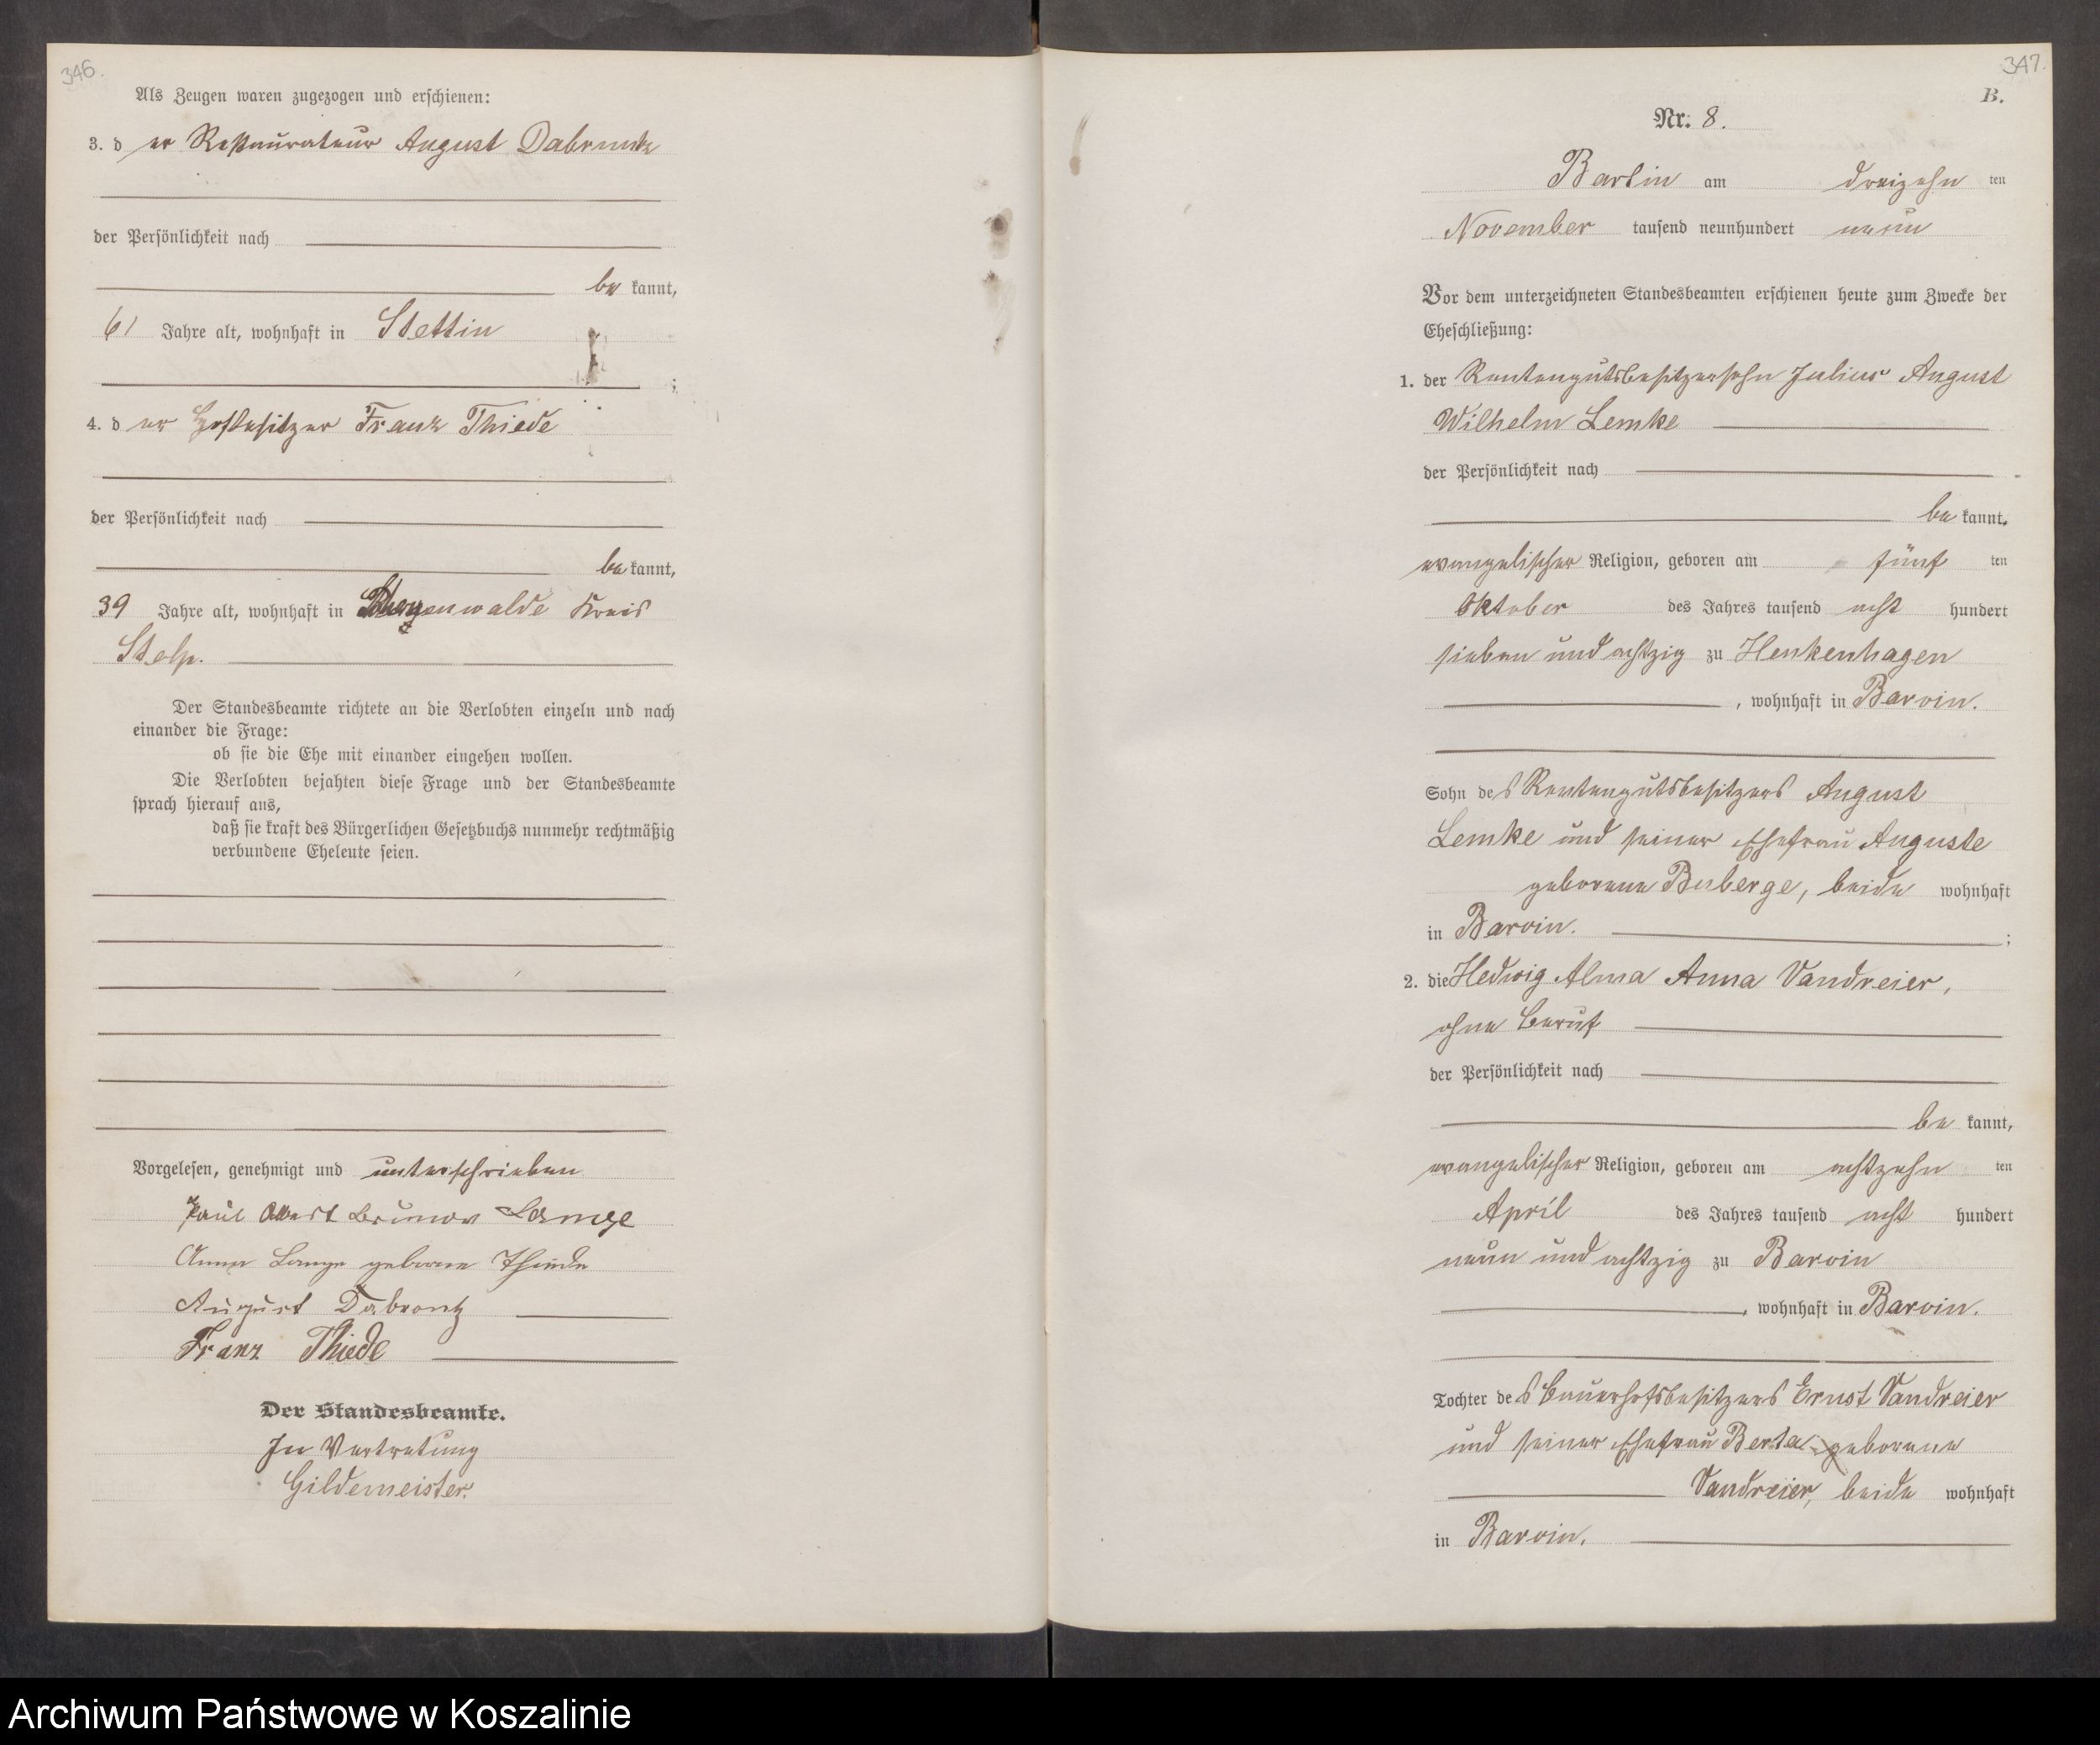 346.
Als Zeugen waren zugezogen und erschienen:
3. d er Restaurateur August Dabruntz
der Persönlichkeit nach
be kannt,
61 Jahre alt, wohnhaft in Stettin
;
4. d er Hofbesitzer Franz Thiede
der Persönlichkeit nach
be kannt,
39 Jahre alt, wohnhaft in Kreis
Stolp.
Der Standesbeamte richtete an die Verlobten einzeln und nach
einander die Frage:
ob sie die Ehe mit einander eingehen wollen.
Die Verlobten bejahten diese Frage und der Standesbeamte
sprach hierauf aus,
daß sie kraft des Bürgerlichen Gesetzbuchs nunmehr rechtmäßig
verbundene Eheleute seien.
Vorgelesen, genehmigt und unterschrieben
Paul Albert Bruno Lange
Anna Lange geborene Thiede
August Dabrontz
Franz Thiede
Der Standesbeamte.
In Vertretung
Gildemeister.
347.
B.
Nr. 8.
Bartin am dreizehn ten
November tausend neunhundert neun
Vor dem unterzeichneten Standesbeamten erschienen heute zum Zwecke der
Eheschließung:
1. der Rentengutsbesitzersohn Julius August
Wilhelm Lemke
der Persönlichkeit nach
be kannt,
evangelischer Religion, geboren am fünf ten
Oktober des Jahres tausend acht hundert
sieben und achtzig zu Henkenhagen
, wohnhaft in Barvin.
Sohn des Rentengutsbesitzers August
Lemke und seiner Ehefrau Auguste
geborene Buberge, beide wohnhaft
in Barvin. ;
2. die Hedwig Alma Anna Vandreier,
ohne Beruf
der Persönlichkeit nach
be kannt,
evangelischer Religion, geboren am achtzehn ten
April des Jahres tausend acht hundert
neun und achtzig zu Barvin
, wohnhaft in Barvin.
Tochter des Bauerhofsbesitzers Ernst Vandreier
und seiner Ehefrau Berta geborene
Vandreier, beide wohnhaft
in Barvin.
Archiwum Państwowe w Koszalinie